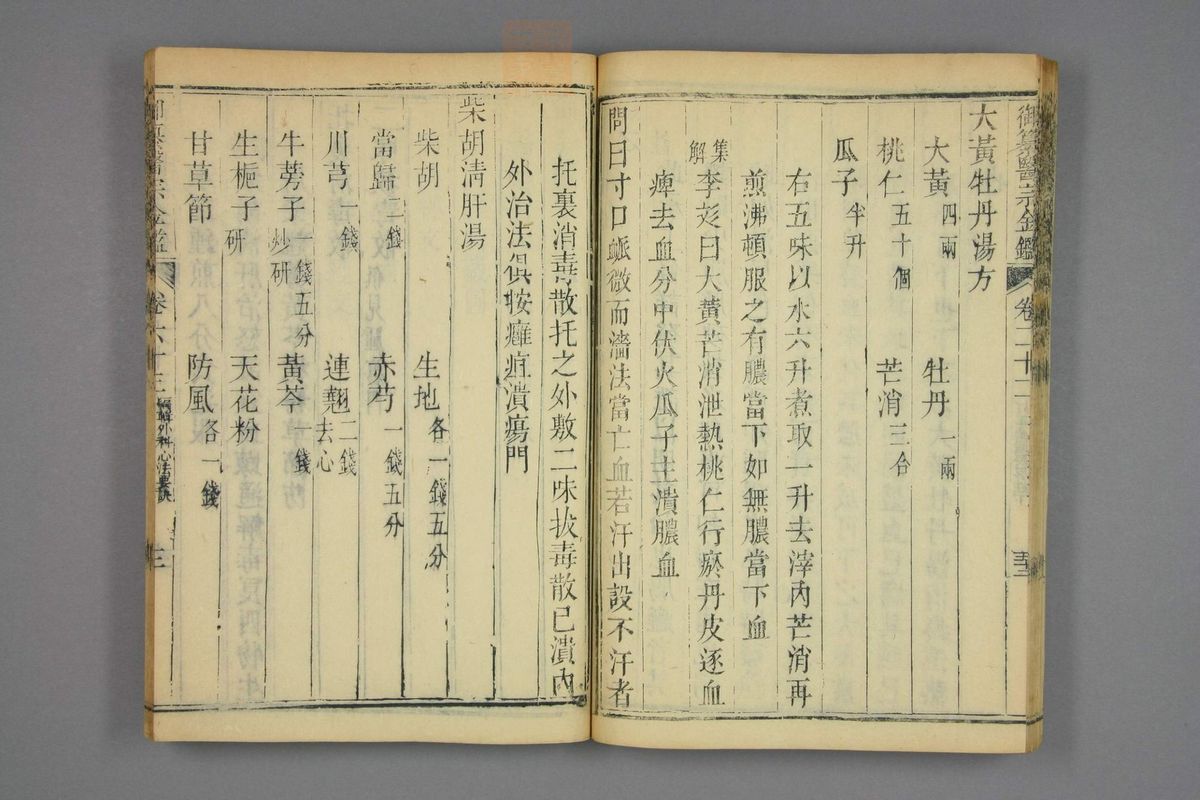 御纂醫宗金鑑 卷二十二
大黃牡丹湯方
大黃四兩 牡丹一兩
桃仁五十個 芒消三合
瓜子半升
右五味以水六升煮取一升去滓內芒消再
煎沸頓服之有膿當下如無膿當下血
集解李彣曰大黃芒消泄熱桃仁行瘀丹皮逐血
痺去血分中伏火瓜子主潰膿血
問曰寸口脈微而濇法當亡血若汗出設不汗者
托裏消毒散托之外敷二味拔毒散已潰內
外治法俱按癰疽潰瘍門
柴胡清肝湯
柴胡 生地各一錢五分
當歸二錢 赤芍一錢五分
川芎一錢 連翹去心二錢
牛蒡子炒研一錢五分 黃芩一錢
生梔子研 天花粉
甘草節 防風各一錢
御纂醫宗金鑑 卷六十三 編輯外科心法要訣 三